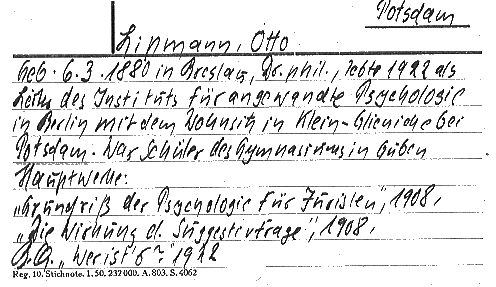 Potsdam
Lipmann, Otto
Geb. 6.3.1880 in Breslau, Dr. phil., lebte 1922 als
Leiter des Instituts für angewandte Psychologie
in Berlin mit dem Wohnsitz in Klein-Glienicke bei
Potsdam. War Schüler des Gymnasiums in Guben
Hauptwerke:
„Grundriß der Psychologie für Juristen", 1908,
„Die Wirkung d. Suggestivfrage", 1908.
„Wer ist's?" 1922
Reg. 10. Stichnote. 1. 50. 232 000. A. 803. S. 4062